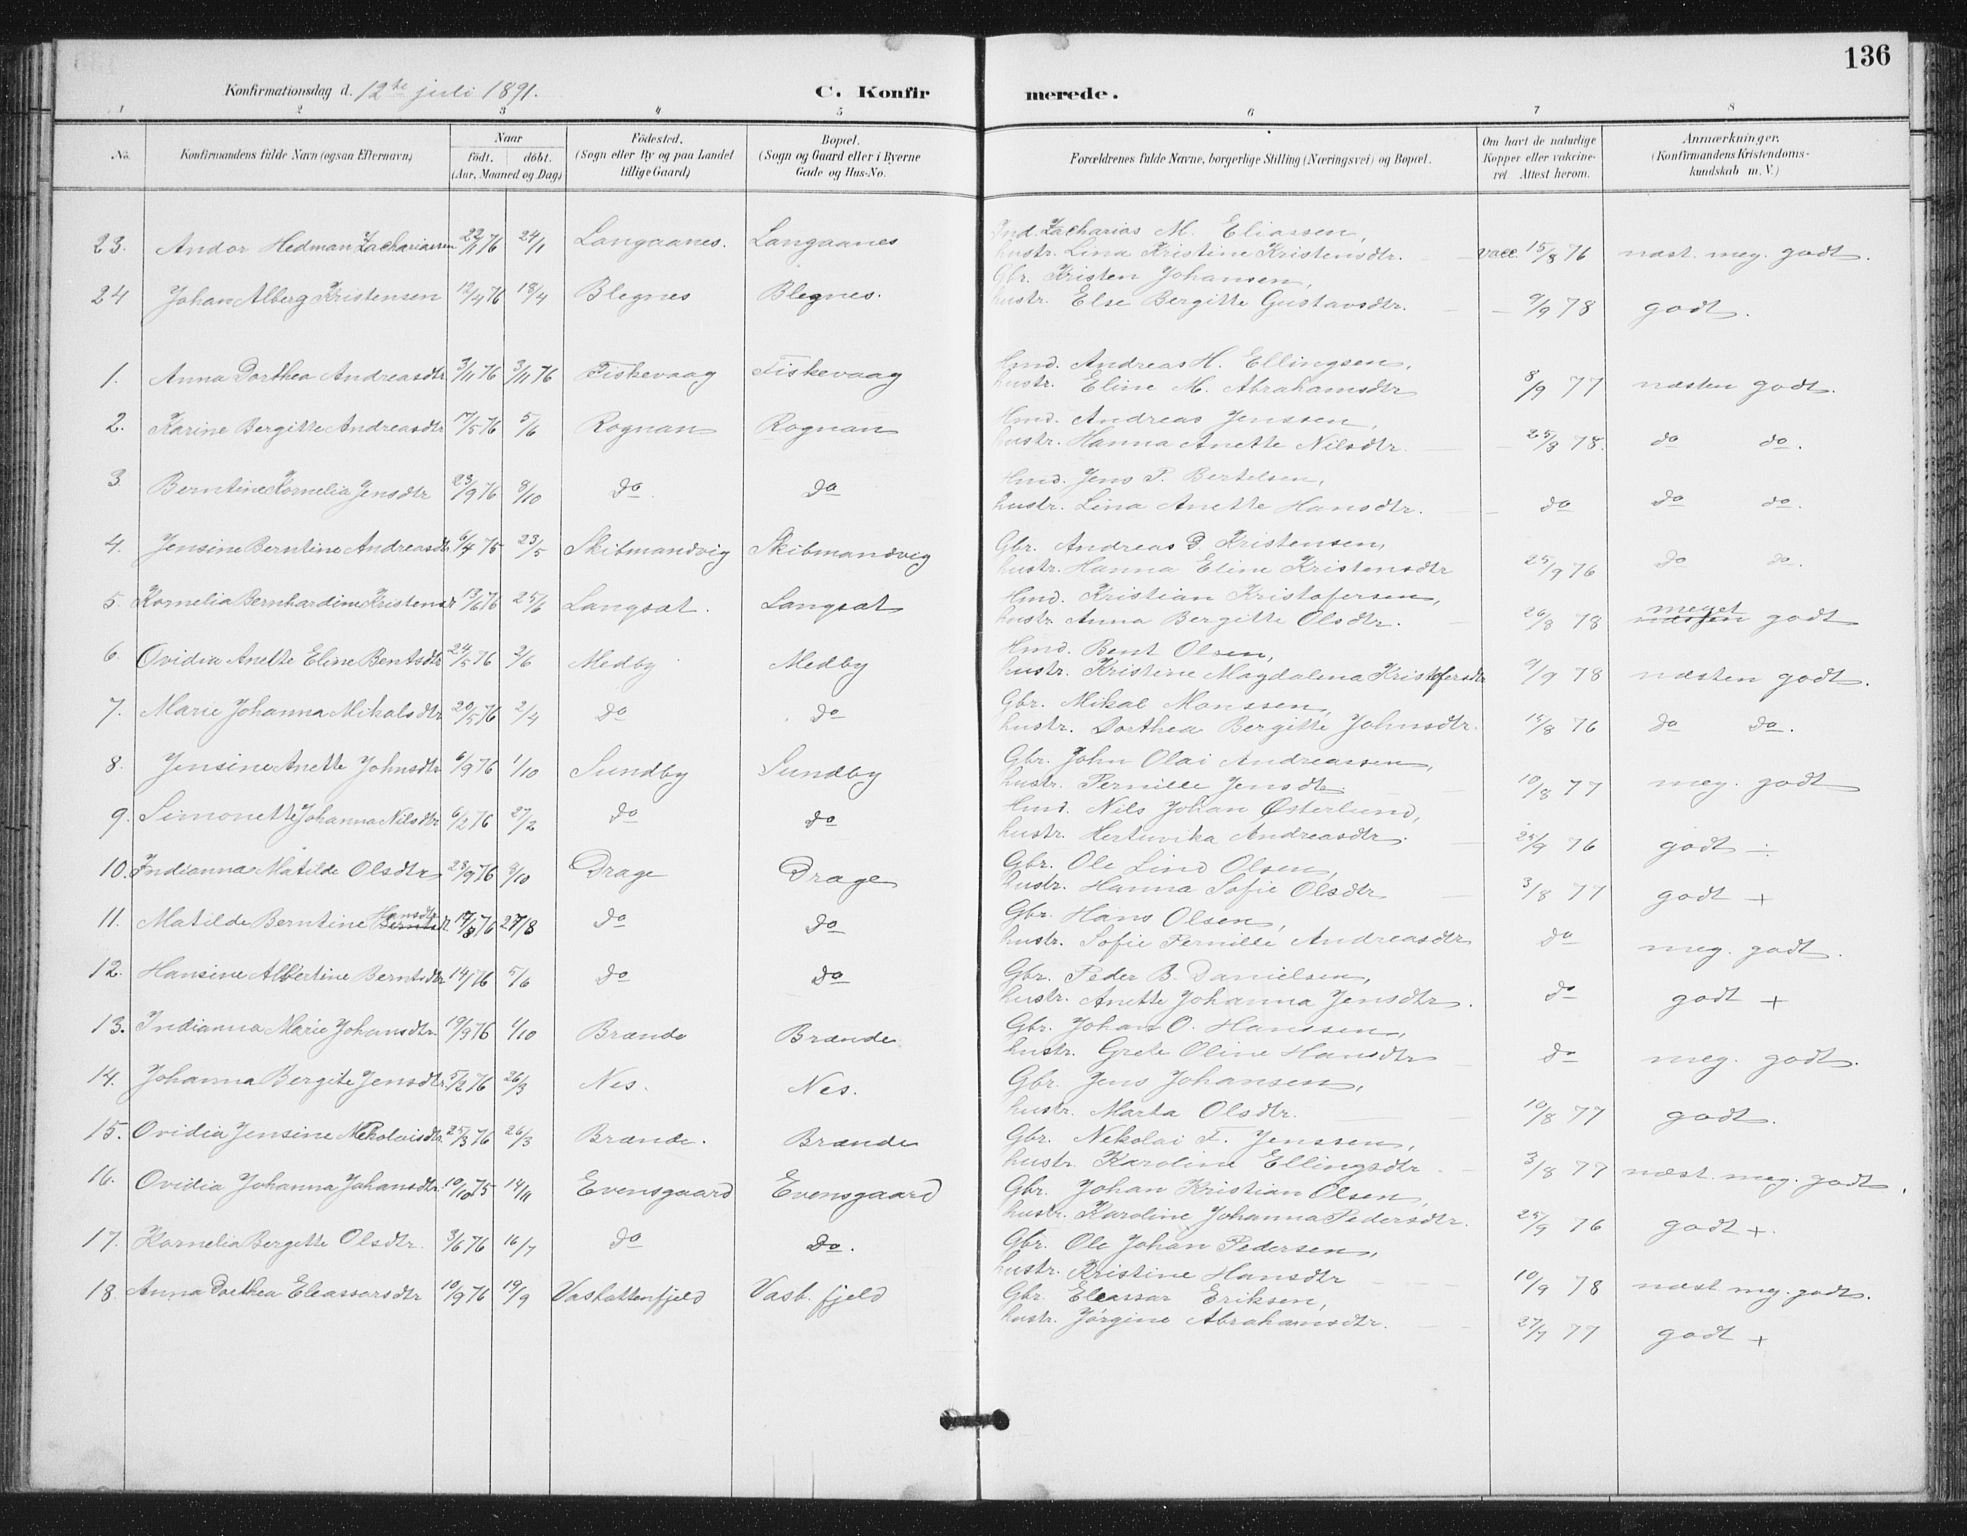 136
Konfirmationsdag d. 12te juli 1891. C. Konfirmerede.
1 2 3 4 5 6 7 8
No. Konfirmandens fulde Navn (ogsaa Efternavn) Naar født. døbt. (Aar, Maaned og Dag) Fødested. (Sogn eller By og paa Landet tillige Gaard) Bopæl. (Sogn og Gaard eller i Byerne Gade og Hus-No. Forældrenes fulde Navne, borgerlige Stilling (Næringsvei) og Bopæl. Om havt de naturlige Kopper eller vakcineret Attest herom. Anmærkninger. (Konfirmandens Kristendomskundskab m. V.)
23. Andor Hedman Zachariassen 22/11 76 24/1 Langaanes. Langaanes Ind. Zacharias M. Eliassen,
hustr. Lina Kristine Kristensdtr. vacc. 15/8 76 næst. meg. godt.
24 Johan Alberg Kristensen 12/4 76 18/4 Blegnes Blegnes. Gbr. Kristen Johansen,
hustr. Else Bergitte Gustavsdtr. 9/9 78 godt.
1. Anna Dorthea Andreasdtr 3/11 76 3/11 76 Fiskevaag Fiskevaag Hmd. Andreas H. Ellingsen,
hustr. Eline M. Abrahamsdtr 8/9 77 næsten godt.
2. Karine Bergitte Andreasdtr 17/5 76 5/6 Rognan Rognan Hmd. Andreas Jenssen,
hustr. Hanna Anette Nilsdtr. 25/8 78. do do.
3 Berntine Kornelia Jensdtr 23/9 76 8/10 do do Hmd. Jens P. Bertelsen,
hustr. Lina Anette Hansdtr. do do do.
4. Jensine Berntine Andreasdtr 6/4 75 23/5 Skibmandvig Skibmandvig Gbr. Andreas D. Kristensen,
hustr. Hanna Eline Kristensdtr 25/9 76 do do.
5. Kornelia Bernhardine Kristensdr 13/6 76 25/6 Langsæt. Langsæt Hmd. Kristian Kristofersen,
hustr. Anna Bergitte Olsdtr. 26/8 78 meget næsten godt
6. Ovidia Anette Eline Bentsdtr 24/5 76 2/6 Medby Medby Hmd. Bent Olsen,
hustr. Kristine Magdalena Kristofersdtr 9/9 78 næsten godt.
7. Marie Johanna Mikalsdtr 20/5 76 2/4 do do Gbr. Mikal Monssen,
hustr. Dorthea Bergitte Johnsdtr. 15/8 76 do do.
8. Jensine Anette Johnsdtr 6/9 76 1/10 Sundby Sundby Gbr. John Olai Andreassen,
hustr. Pernille Jensdtr. 10/8 77 meg. godt
9. Simonette Johanna Nilsdtr 6/2 76 27/2 do do Hmd. Nils Johan Østerlund,
hustr. Hertuvika Andreasdtr. 25/9 76 godt ÷
10. Indianna Matilde Olsdtr 28/9 76 8/10 Drage Drage Gbr. Ole Lind Olsen,
hustr. Hanna Sofie Olsdtr 3/8 77 godt +
11. Matilde Berntine Hansdtr 76 27/8 do do Gbr. Hans Olsen,
hustr. Sofie Pernille Andreasdtr do meg. godt.
12. Hansine Albertine Berntsdtr 76 5/6 do do Gbr. Peder B. Danielsen,
hustr. Anette Johanna Jensdtr. do godt +
13. Indianna Marie Johansdtr. 19/9 76 1/10 Brænde Brænde. Gbr. Johan O. Hanssen,
hustr. Grete Oline Hansdtr do meg. godt.
14. Johanna Bergite Jensdtr. 5/2 76 26/3 Nes. Nes. Gbr. Jens Johansen,
hustr. Marta Olsdtr. 10/8 77 godt.
15. Ovidia Jensine Nekolaisdtr. 25/3 76 26/3 Brænde. Brænde Gbr. Nekolai F. Jenssen,
hustr. Karoline Ellingsdtr. 3/8 77 næst. meg. godt.
16. Ovidia Johanna Johansdtr. 10/10 75 14/11 Evensgaard Evensgaard Gbr. Johan Kristian Olsen,
hustr. Karoline Johanna Pedersdtr. 25/9 76 godt +.
17. Kornelia Bergette Olsdtr. 3/6 76 16/7 do do. Gbr. Ole Johan Pedersen,
hustr. Kristine Hansdtr 10/9 78 næst. meg. godt.
18. Anna Dorthea Eleassarsdtr 10/9 76 19/9 Vasbattenfjeld Vasb. fjeld Gbr. Eleassar Eriksen,
hustr. Jørgine Abrahamsdtr. 27/7 77 godt +